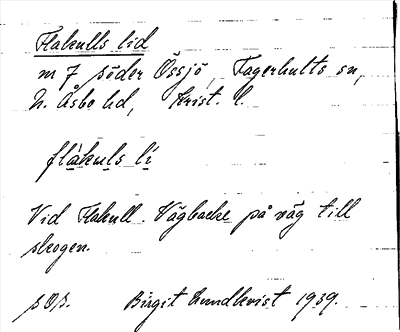 Flakulls lid
m 7 söder Össjö, Fagerhults sn,
N. Åsbo hd, Krist. l.
flàkuls lí
Vid Flakull. Vägbacke på väg till
skogen.
Birgit Lundkvist 1939.